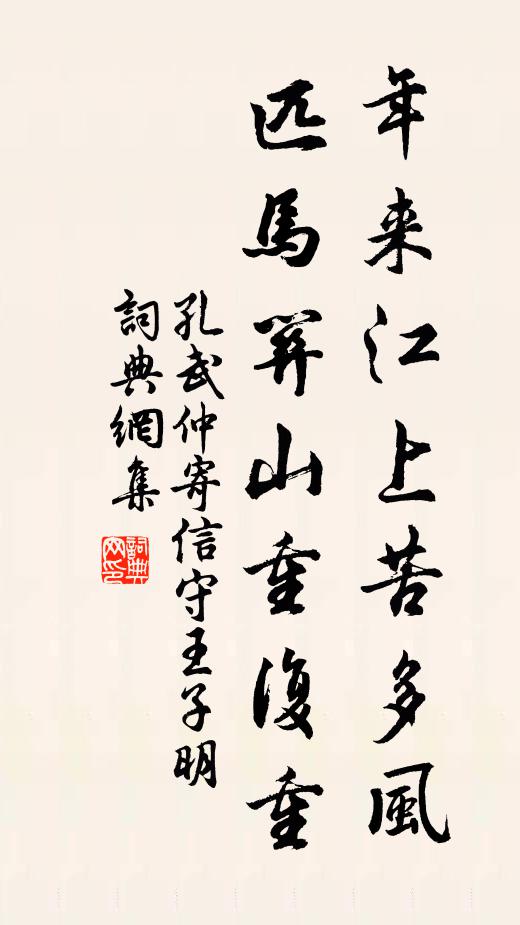 年来江上苦多風
匹馬關山重復重
孔武仲寄信守王子明
詞典網集
詞典
网印